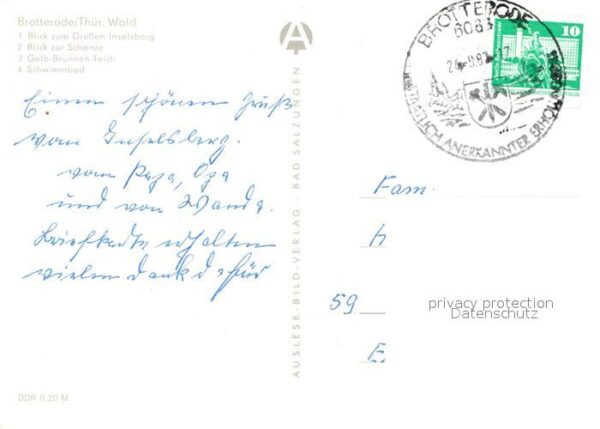 Brotterode/Thür. Wald
1 Blick zum Großen Inselsberg
2 Blick zur Schanze
3 Gelb-Brunnen-Teich
4 Schwimmbad
Einen schönen Gruß
vom Inselsberg.
vom Papa, Opa
und von Wanda.
Briefkarte erhalten
vielen dank dafür
DDR 0,20 M
AUSLESE-BILD-VERLAG · BAD SALZUNGEN
BROTTERODE
6083
STAATLICH ANERKANNTER
10
Fam.
h
59
E.
privacy protection
Datenschutz